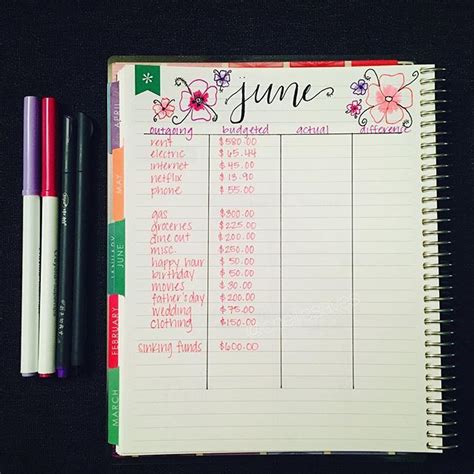 *
june
outgoing budgeted actual difference
rent $580.00
electric $65.44
internet $45.00
netflix $13.90
phone $55.00
gas $300.00
groceries $225.00
dine out $200.00
misc. $250.00
happy hour $50.00
birthday $50.00
movies $30.00
father's day $200.00
wedding $75.00
clothing $150.00
sinking funds $600.00
APRIL
MAY
JUNE
FEBRUARY
MARCH